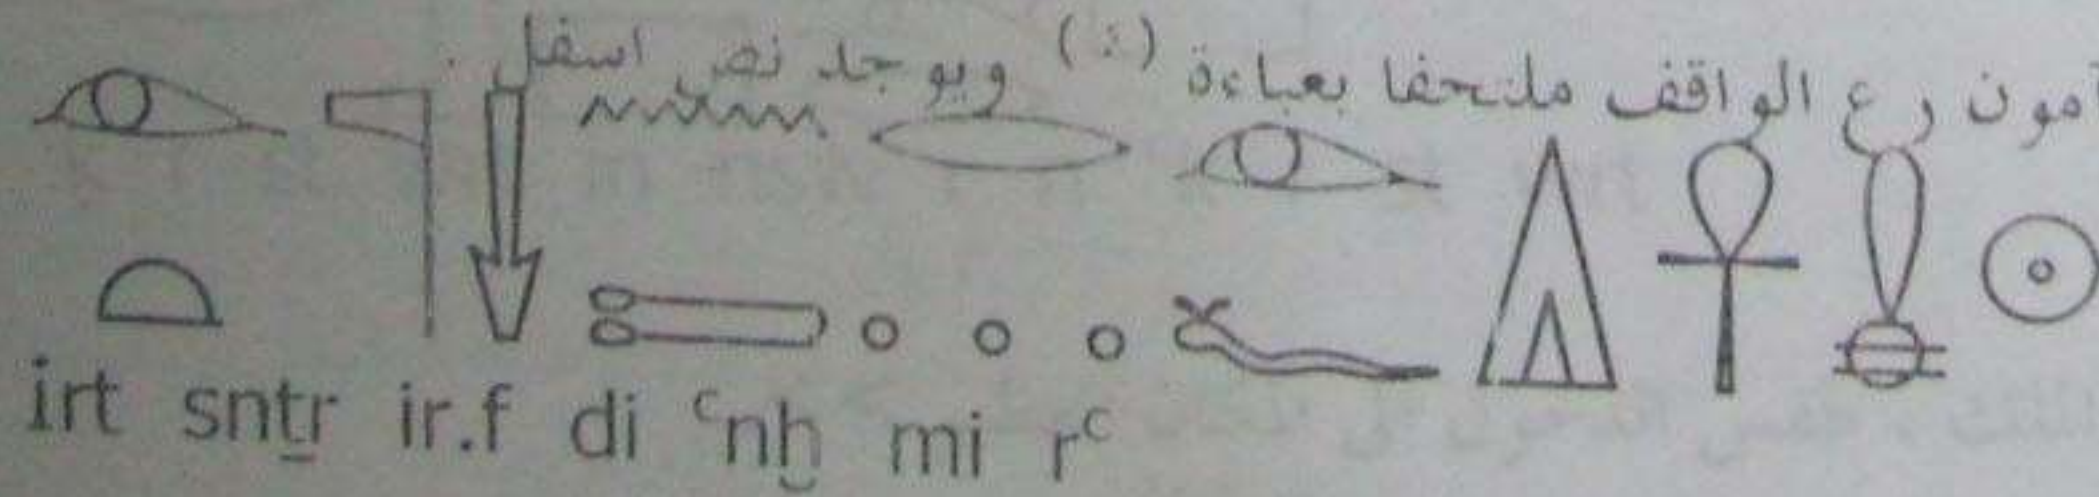 آمون رع الواقف ملتحفا بعباءة (٤) ويوجد نص اسفل .
irt snṯr ir.f di ꜥnḫ mi rꜥ